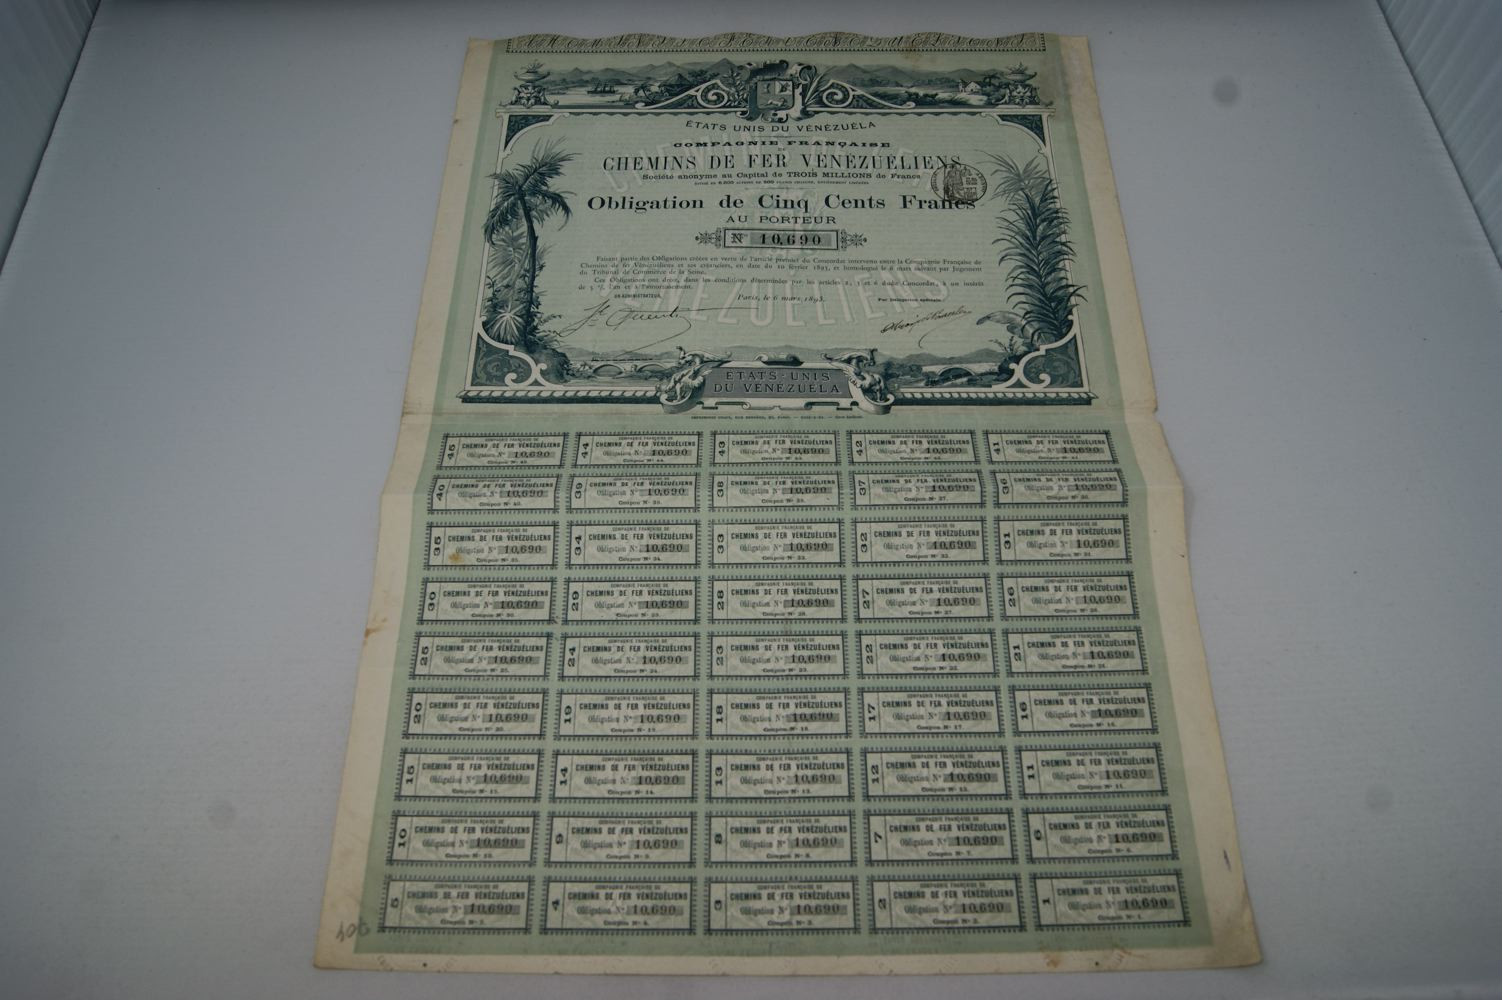 ÉTATS UNIS DU VÉNÉZUÉLA
COMPAGNIE FRANÇAISE
DE
CHEMINS DE FER VÉNÉZUÉLIENS
Société anonyme au Capital de TROIS MILLIONS de Francs
Obligation de Cinq Cents Francs
AU PORTEUR
No 10,690
Faisant partie des Obligations créées en vertu de l'article premier du Concordat intervenu entre la Compagnie Française de
Chemins de fer Vénézuéliens et ses créanciers, en date du 10 février 1893, et homologué le 6 mars suivant par Jugement
du Tribunal de Commerce de la Seine.
Ces Obligations ont droit, dans les conditions déterminées par les articles 2, 3 et 6 dudit Concordat, à un intérêt
de 5 % l'an et à l'amortissement.
UN ADMINISTRATEUR,
Paris, le 6 mars 1893.
Par Délégation spéciale
ÉTATS-UNIS
DU VÉNÉZUÉLA
45 COMPAGNIE FRANÇAISE DE CHEMINS DE FER VÉNÉZUÉLIENS Obligation No 10,690 Coupon No 45.
44 COMPAGNIE FRANÇAISE DE CHEMINS DE FER VÉNÉZUÉLIENS Obligation No 10,690 Coupon No 44.
43 COMPAGNIE FRANÇAISE DE CHEMINS DE FER VÉNÉZUÉLIENS Obligation No 10,690 Coupon No 43.
42 COMPAGNIE FRANÇAISE DE CHEMINS DE FER VÉNÉZUÉLIENS Obligation No 10,690 Coupon No 42.
41 COMPAGNIE FRANÇAISE DE CHEMINS DE FER VÉNÉZUÉLIENS Obligation No 10,690 Coupon No 41.
40 COMPAGNIE FRANÇAISE DE CHEMINS DE FER VÉNÉZUÉLIENS Obligation No 10,690 Coupon No 40.
39 COMPAGNIE FRANÇAISE DE CHEMINS DE FER VÉNÉZUÉLIENS Obligation No 10,690 Coupon No 39.
38 COMPAGNIE FRANÇAISE DE CHEMINS DE FER VÉNÉZUÉLIENS Obligation No 10,690 Coupon No 38.
37 COMPAGNIE FRANÇAISE DE CHEMINS DE FER VÉNÉZUÉLIENS Obligation No 10,690 Coupon No 37.
36 COMPAGNIE FRANÇAISE DE CHEMINS DE FER VÉNÉZUÉLIENS Obligation No 10,690 Coupon No 36.
35 COMPAGNIE FRANÇAISE DE CHEMINS DE FER VÉNÉZUÉLIENS Obligation No 10,690 Coupon No 35.
34 COMPAGNIE FRANÇAISE DE CHEMINS DE FER VÉNÉZUÉLIENS Obligation No 10,690 Coupon No 34.
33 COMPAGNIE FRANÇAISE DE CHEMINS DE FER VÉNÉZUÉLIENS Obligation No 10,690 Coupon No 33.
32 COMPAGNIE FRANÇAISE DE CHEMINS DE FER VÉNÉZUÉLIENS Obligation No 10,690 Coupon No 32.
31 COMPAGNIE FRANÇAISE DE CHEMINS DE FER VÉNÉZUÉLIENS Obligation No 10,690 Coupon No 31.
30 COMPAGNIE FRANÇAISE DE CHEMINS DE FER VÉNÉZUÉLIENS Obligation No 10,690 Coupon No 30.
29 COMPAGNIE FRANÇAISE DE CHEMINS DE FER VÉNÉZUÉLIENS Obligation No 10,690 Coupon No 29.
28 COMPAGNIE FRANÇAISE DE CHEMINS DE FER VÉNÉZUÉLIENS Obligation No 10,690 Coupon No 28.
27 COMPAGNIE FRANÇAISE DE CHEMINS DE FER VÉNÉZUÉLIENS Obligation No 10,690 Coupon No 27.
26 COMPAGNIE FRANÇAISE DE CHEMINS DE FER VÉNÉZUÉLIENS Obligation No 10,690 Coupon No 26.
25 COMPAGNIE FRANÇAISE DE CHEMINS DE FER VÉNÉZUÉLIENS Obligation No 10,690 Coupon No 25.
24 COMPAGNIE FRANÇAISE DE CHEMINS DE FER VÉNÉZUÉLIENS Obligation No 10,690 Coupon No 24.
23 COMPAGNIE FRANÇAISE DE CHEMINS DE FER VÉNÉZUÉLIENS Obligation No 10,690 Coupon No 23.
22 COMPAGNIE FRANÇAISE DE CHEMINS DE FER VÉNÉZUÉLIENS Obligation No 10,690 Coupon No 22.
21 COMPAGNIE FRANÇAISE DE CHEMINS DE FER VÉNÉZUÉLIENS Obligation No 10,690 Coupon No 21.
20 COMPAGNIE FRANÇAISE DE CHEMINS DE FER VÉNÉZUÉLIENS Obligation No 10,690 Coupon No 20.
19 COMPAGNIE FRANÇAISE DE CHEMINS DE FER VÉNÉZUÉLIENS Obligation No 10,690 Coupon No 19.
18 COMPAGNIE FRANÇAISE DE CHEMINS DE FER VÉNÉZUÉLIENS Obligation No 10,690 Coupon No 18.
17 COMPAGNIE FRANÇAISE DE CHEMINS DE FER VÉNÉZUÉLIENS Obligation No 10,690 Coupon No 17.
16 COMPAGNIE FRANÇAISE DE CHEMINS DE FER VÉNÉZUÉLIENS Obligation No 10,690 Coupon No 16.
15 COMPAGNIE FRANÇAISE DE CHEMINS DE FER VÉNÉZUÉLIENS Obligation No 10,690 Coupon No 15.
14 COMPAGNIE FRANÇAISE DE CHEMINS DE FER VÉNÉZUÉLIENS Obligation No 10,690 Coupon No 14.
13 COMPAGNIE FRANÇAISE DE CHEMINS DE FER VÉNÉZUÉLIENS Obligation No 10,690 Coupon No 13.
12 COMPAGNIE FRANÇAISE DE CHEMINS DE FER VÉNÉZUÉLIENS Obligation No 10,690 Coupon No 12.
11 COMPAGNIE FRANÇAISE DE CHEMINS DE FER VÉNÉZUÉLIENS Obligation No 10,690 Coupon No 11.
10 COMPAGNIE FRANÇAISE DE CHEMINS DE FER VÉNÉZUÉLIENS Obligation No 10,690 Coupon No 10.
9 COMPAGNIE FRANÇAISE DE CHEMINS DE FER VÉNÉZUÉLIENS Obligation No 10,690 Coupon No 9.
8 COMPAGNIE FRANÇAISE DE CHEMINS DE FER VÉNÉZUÉLIENS Obligation No 10,690 Coupon No 8.
7 COMPAGNIE FRANÇAISE DE CHEMINS DE FER VÉNÉZUÉLIENS Obligation No 10,690 Coupon No 7.
6 COMPAGNIE FRANÇAISE DE CHEMINS DE FER VÉNÉZUÉLIENS Obligation No 10,690 Coupon No 6.
5 COMPAGNIE FRANÇAISE DE CHEMINS DE FER VÉNÉZUÉLIENS Obligation No 10,690 Coupon No 5.
4 COMPAGNIE FRANÇAISE DE CHEMINS DE FER VÉNÉZUÉLIENS Obligation No 10,690 Coupon No 4.
3 COMPAGNIE FRANÇAISE DE CHEMINS DE FER VÉNÉZUÉLIENS Obligation No 10,690 Coupon No 3.
2 COMPAGNIE FRANÇAISE DE CHEMINS DE FER VÉNÉZUÉLIENS Obligation No 10,690 Coupon No 2.
1 COMPAGNIE FRANÇAISE DE CHEMINS DE FER VÉNÉZUÉLIENS Obligation No 10,690 Coupon No 1.